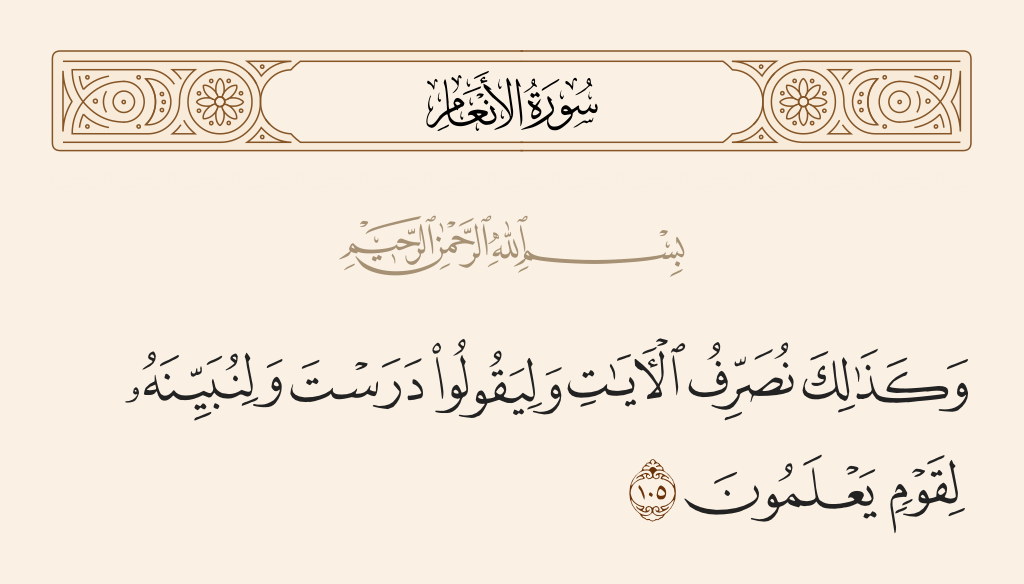 سُورَةُ الأَنْعَامِ
بِسْمِ ٱللَّهِ ٱلرَّحْمَٰنِ ٱلرَّحِيمِ
وَكَذَٰلِكَ نُصَرِّفُ ٱلْـَٔايَـٰتِ وَلِيَقُولُوا۟ دَرَسْتَ وَلِنُبَيِّنَهُۥ
لِقَوْمٍ يَعْلَمُونَ ١٠٥